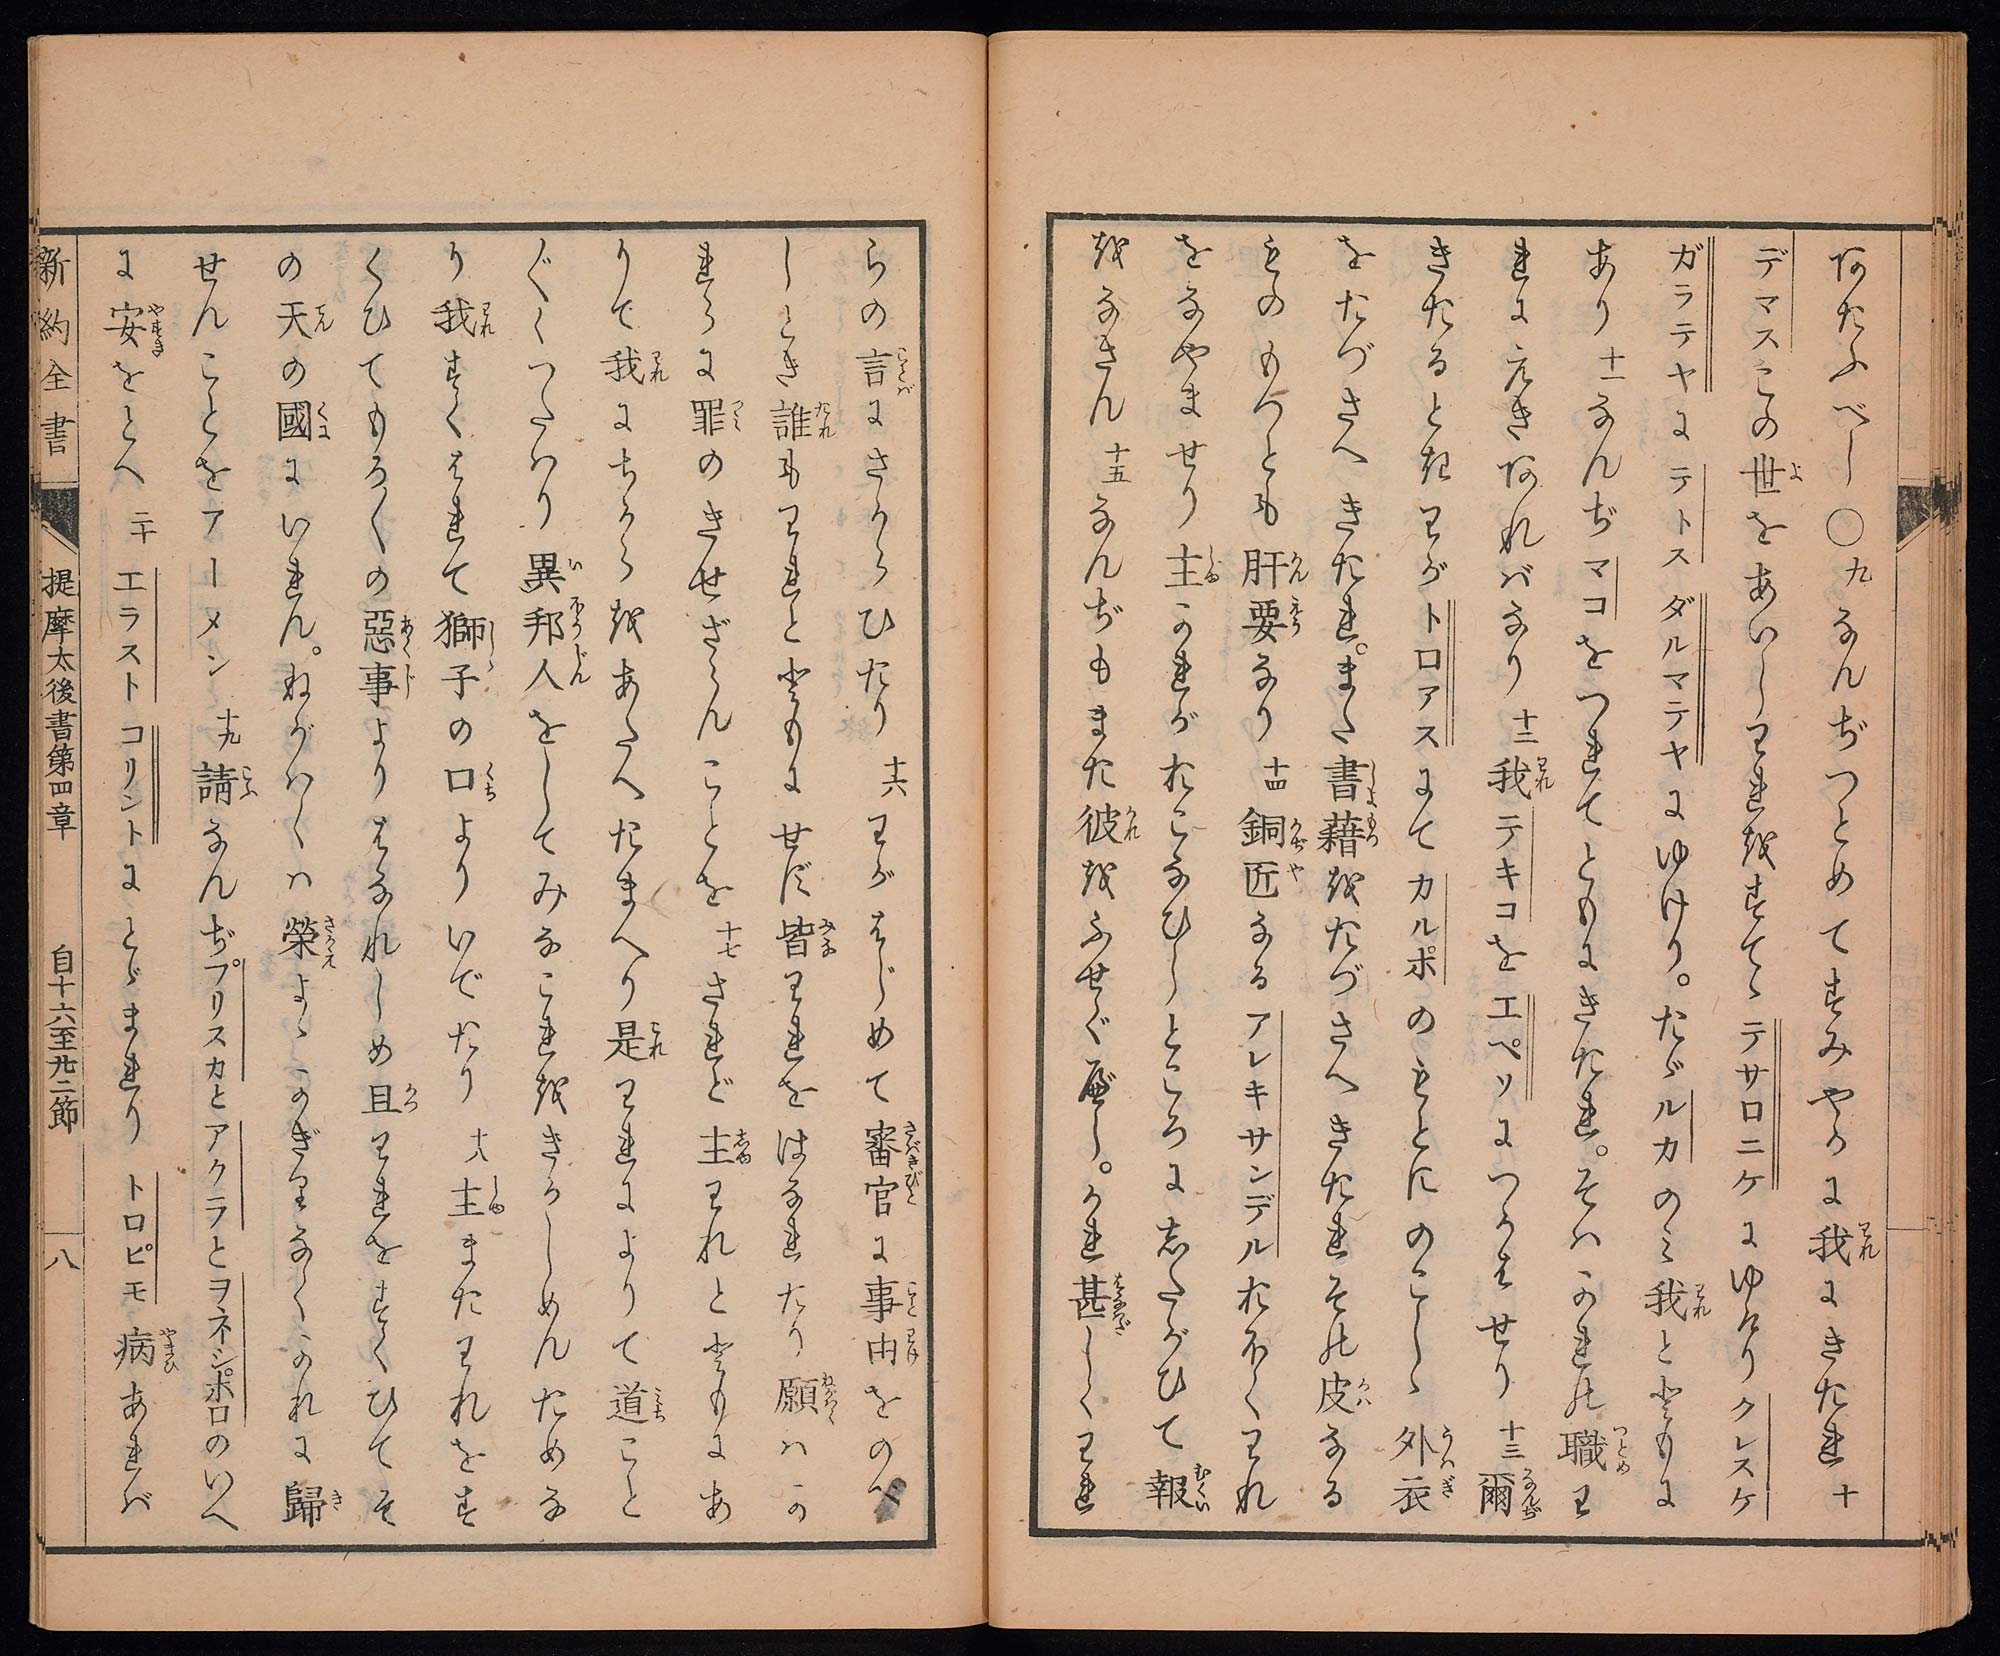 あたふべし〇九なんぢつとめてすみやかに我にきたれ十
デマスこの世をあいしわれをすてゝテサロニケにゆけりクレスケ
ガラテヤにテトスダルマテヤにゆけり。たゞルカのミ我とともに
あり十一なんぢマコをつれてともにきたれ。そハかれの職わ
れにえきあれバなり十二我テキコをエペソにつかはせり十三爾
きたるときわがトロアスにてカルポのもとにのこしゝ外衣
をたづさへきたれ。また書藉をたづさへきたれその皮なる
ものもつとも肝要なり十四銅匠なるアレキサンデルおほくわれ
をなやませり主かれがおこなひしところにしたがひて報
をなさん十五なんぢもまた彼をふせぐべし。かれ甚しくわれ
らの言にさからひたり十六わがはじめて審官に事由をのべ
しとき誰もわれとともにせず皆われをはなれたり願ハか
れらに罪のきせざらんことを十七されど主われとともにあ
りて我にちからをあたへたまへり是われによりて道こと
ごとくつたハり異邦人をしてみなこれをきかしめんためな
り我すくはれて獅子の口よりいでたり十八主またわれをす
くひてもろ〱の惡事よりはなれしめ且われをすくひてそ
の天の國にいれん。ねがハくハ榮よゝかぎりなくかれに歸
せんことをアーメン十九請なんぢプリスカとアクラとヲネシポロのいへ
に安をとへ二十エラストコリントにとゞまれりトロピモ病あれバ
新約全書 提摩太後書第四章 自十六至廿二節 八